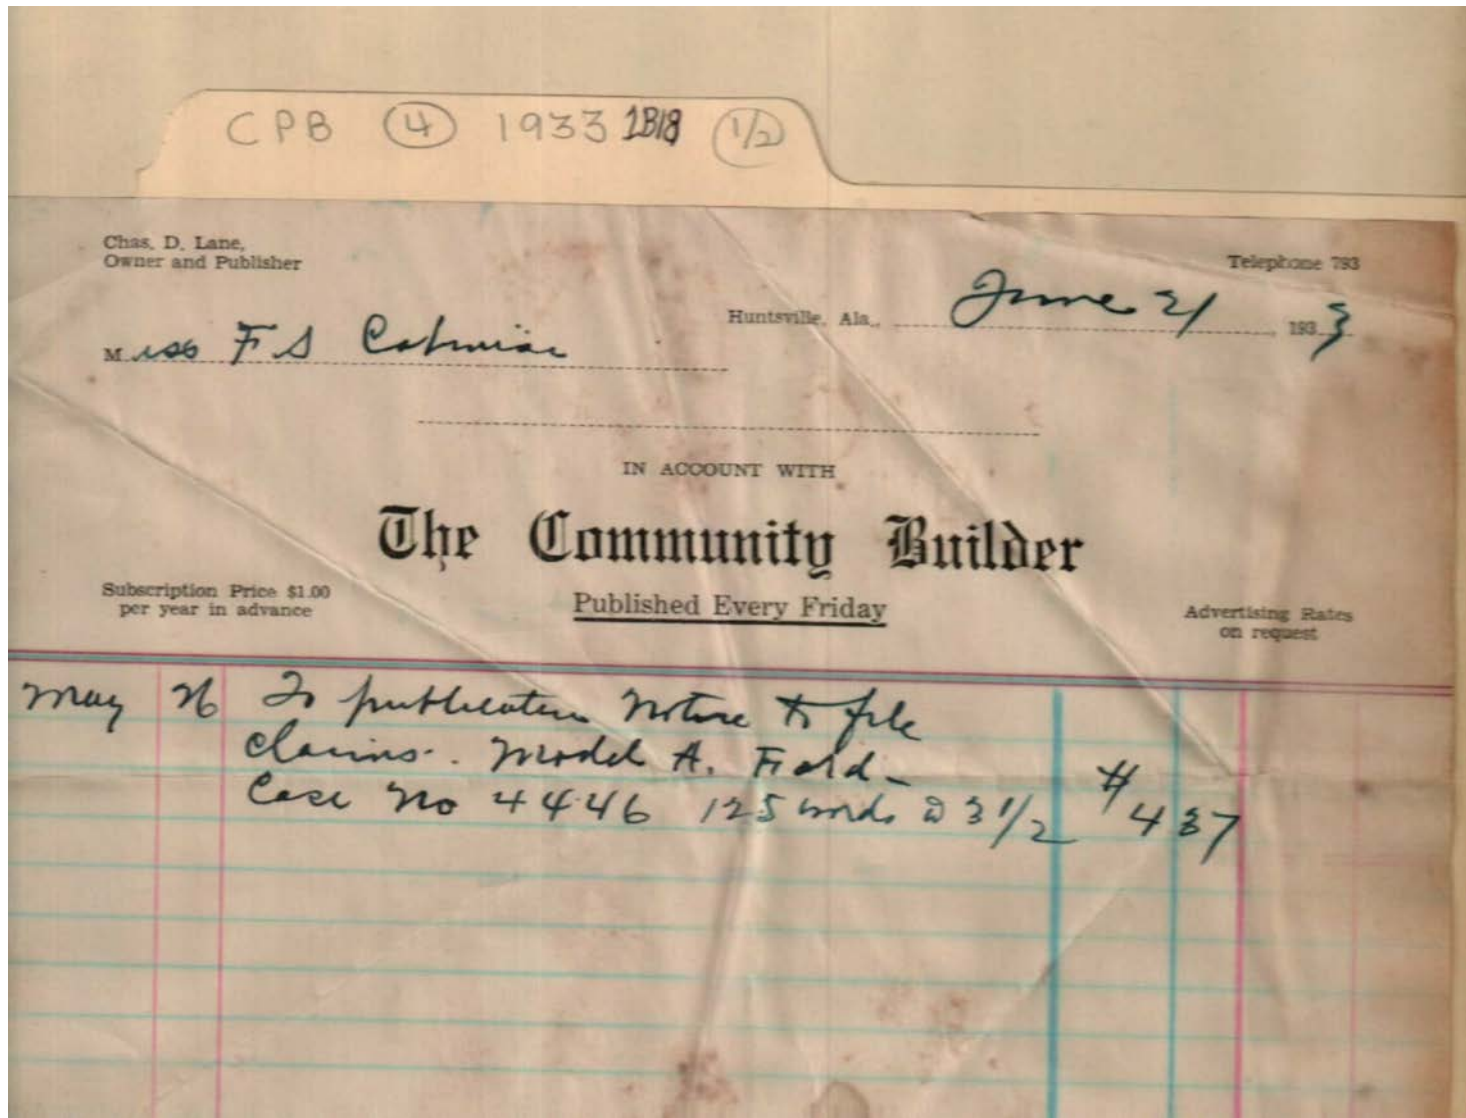 CPB 4 1933 1B18 1/2
Chas. D. Lane,
Owner and Publisher
Telephone 793
Huntsville, Ala., June 21, 1933
Miss F S
IN ACCOUNT WITH
The Community Builder
Subscription Price $1.00
per year in advance
Published Every Friday
Advertising Rates
on request
May 26 To publication Notice to file
claims. Model A. Ford-
Case No 4446 125 words @ 3 1/2 # 4 37